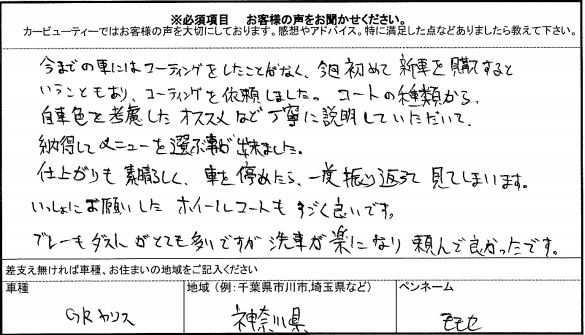 ※必須項目　お客様の声をお聞かせください。
カービューティーではお客様の声を大切にしております。感想やアドバイス。特に満足した点などありましたら教えて下さい。
今までの車にはコーティングをしたことがなく、今回初めて新車を購入すると
いうこともあり、コーティングを依頼しました。コートの種類から、
自車色を考慮したオススメなど丁寧に説明していただいて、
納得してメニューを選ぶ事が出来ました。
仕上がりも素晴しく、車を停めたら、一度振り返って見てしまいます。
いっしょにお願いしたホイールコートもすごく良いです。
ブレーキダストがとても多いですが洗車が楽になり頼んで良かったです。
差支え無ければ車種、お住まいの地域をご記入ください
車種
地域（例：千葉県市川市,埼玉県など）
ペンネーム
GRヤリス
神奈川県